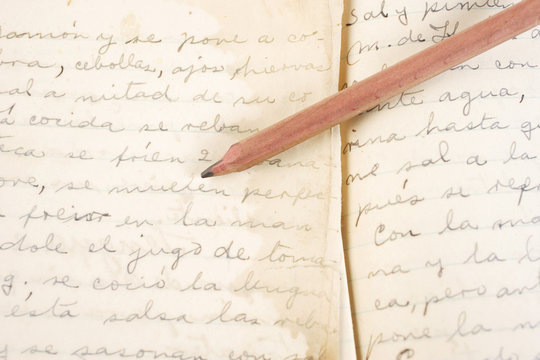 jamón y se pone a co
bra, cebollas, ajos, hiervas
sal a mitad de su co
cocida se reban
teca se fríen 2
se muelen perfec
a freir en la man
dole el jugo de toma
g, se coció la lengua
esta salsa las reba
y se sasonan con sal
sal y pimien
M. de
con
ente agua,
rina hasta
me sal a la
pués se
Con la ma
na y la
ca, pero ant
pone la m